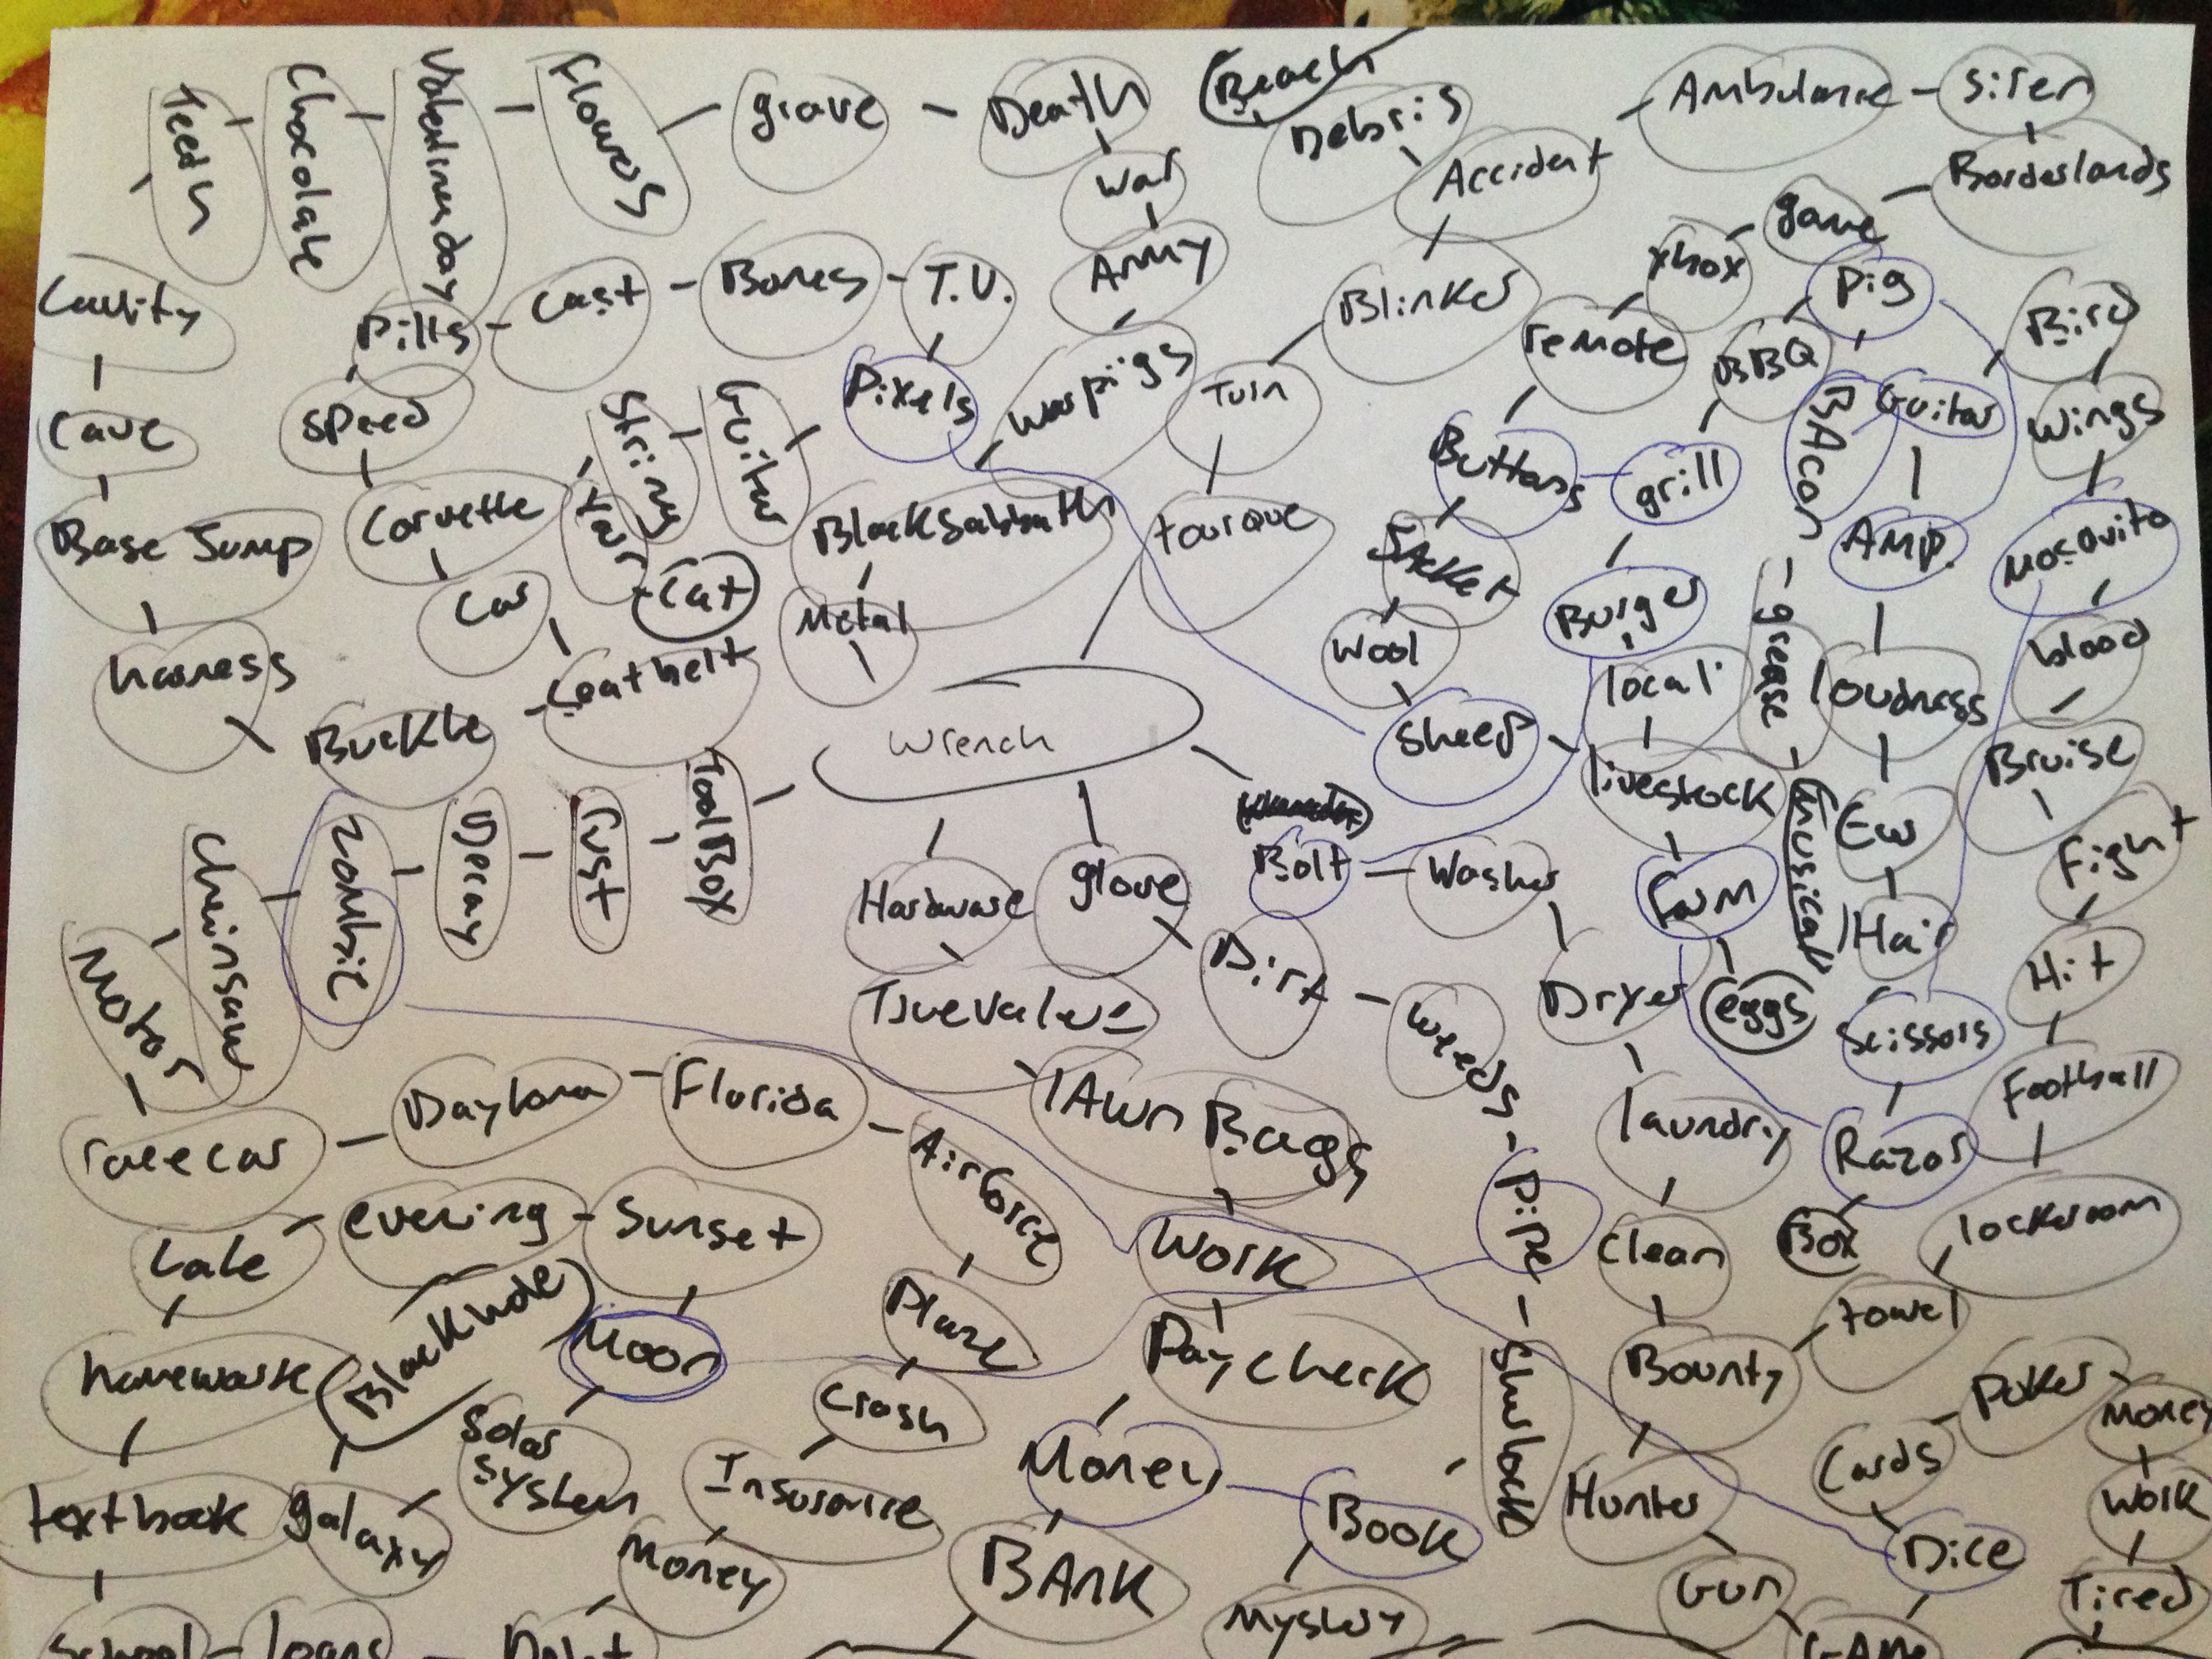 Teeth
Chocolate
Valentines day
Flowers
grave
Death
Beach
Debris
Accident
Ambulance
Siren
Borderlands
game
xbox
remote
Buttons
Jacket
Wool
Sheep
War
Army
Warpigs
Black Sabbath
Metal
Cavity
Cave
Base Jump
harness
Buckle
Seatbelt
Car
Corvette
Speed
Pills
Cast
Bones
T.V.
Pixels
Guitar
String
Yarn
Cat
Blinker
Turn
tourque
Wrench
pig
BBQ
grill
Burger
local
livestock
farm
eggs
BAcon
grease
(musical)
Guitar
AMP.
loudness
Ear
Hair
Scissors
Razor
Box
Bird
Wings
Mosquito
blood
Bruise
Fight
Hit
Football
lockeroom
towel
Bounty
Clean
laundry
Dryer
Washer
Bolt
ToolBox
rust
Decay
Zombie
Chainsaw
Motor
racecar
Daytona
Florida
Airforce
Plane
Crash
Insurance
Money
Debt
loans
School
textbook
homework
Late
evening
Sunset
Moon
Solar
System
galaxy
Blackhole
Hardware
TrueValue
lAwn Bags
Work
Paycheck
Money
BAnk
glove
Dirt
Weeds
Pipe
Shurlock
Book
Mystery
Hunter
Gun
GAMe
Dice
Cards
Poker
Money
Work
Tired